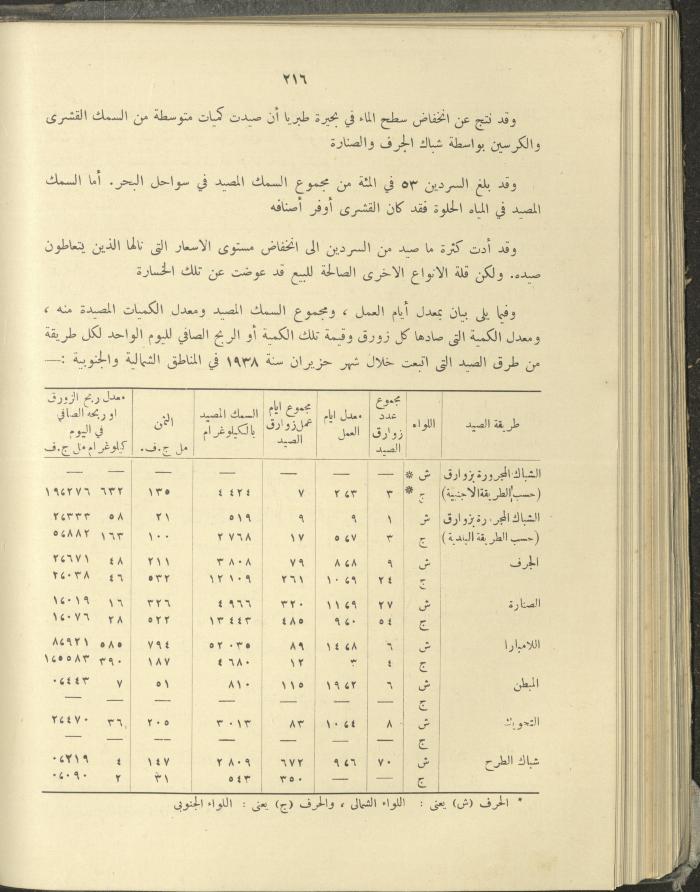 ٢١٦
وقد نتج عن انخفاض سطح الماء في بحيرة طبريا أن صيدت كميات متوسطة من السمك القشرى
والكرسين بواسطة شباك الجرف والصنارة
وقد بلغ السردين ٥٣ في المئة من مجموع السمك المصيد في سواحل البحر. أما السمك
المصيد في المياه الحلوة فقد كان القشرى أوفر أصنافه
وقد أدت كثرة ما صيد من السردين الى انخفاض مستوى الاسعار التى نالها الذين يتعاطون
صيده. ولكن قلة الانواع الاخرى الصالحة للبيع قد عوضت عن تلك الخسارة
وفيما يلى بيان بمعدل أيام العمل ، ومجموع السمك المصيد ومعدل الكميات المصيدة منه ،
ومعدل الكمية التى صادها كل زورق وقيمة تلك الكمية أو الربح الصافي لليوم الواحد لكل طريقة
من طرق الصيد التى اتبعت خلال شهر حزيران سنة ١٩٣٨ في المناطق الشمالية والجنوبية :—
طريقة الصيد | اللواء | مجموع عدد زوارق الصيد | معدل ايام العمل | مجموع ايام عمل زوارق الصيد | السمك المصيد بالكيلوغرام | الثمن مل ج.ف. | معدل ربح الزورق او ربحه الصافي في اليوم كيلوغرام مل ج.ف
الشباك المجرورة بزوارق ش * — — — — — — —
(حسب الطريقة الاجنبية) ج * ٣ ٢٫٣ ٧ ٤٤٢٤ ١٣٥ ٦٣٢ ١٩٫٢٧٦
الشباك المجرورة بزوارق ش ١ ٩ ٩ ٥١٩ ٢١ ٥٨ ٢٫٣٣٣
(حسب الطريقة البلدية) ج ٣ ٥٫٧ ١٧ ٢٧٦٨ ١٠٠ ١٦٣ ٥٫٨٨٢
الجرف ش ٩ ٨٫٨ ٧٩ ٣٨٠٨ ٢١١ ٤٨ ٢٫٦٧١
ج ٢٤ ١٠٫٩ ٢٦١ ١٢١٠٩ ٥٣٢ ٤٦ ٢٫٠٣٨
الصنارة ش ٢٧ ١١٫٩ ٣٢٠ ٤٩٦٦ ٣٢٦ ١٦ ١٫٠١٩
ج ٥٤ ٩٫٠ ٤٨٥ ١٣٤٤٣ ٥٢٢ ٢٨ ١٫٠٧٦
اللامبارا ش ٦ ١٤٫٨ ٨٩ ٥٢٠٣٥ ٧٩٤ ٥٨٥ ٨٫٩٢١
ج ٤ ٣ ١٢ ٤٦٨٠ ١٨٧ ٣٩٠ ١٥٫٥٨٣
المبطن ش ٦ ١٩٫٢ ١١٥ ٨١٠ ٥١ ٧ ٠٫٤٤٣
ج — — — — — — —
التحويك ش ٨ ١٠٫٤ ٨٣ ٣٠١٣ ٢٠٥ ٣٦ ٢٫٤٧٠
ج — — — — — — —
شباك الطرح ش ٧٠ ٩٫٦ ٦٧٢ ٢٨٠٩ ١٤٧ ٤ ٠٫٢١٩
ج — — ٣٥٠ ٥٤٣ ٣١ ٢ ٠٫٠٩٠
* الحرف (ش) يعنى : اللواء الشمالى ، والحرف (ج) يعنى : اللواء الجنوبى